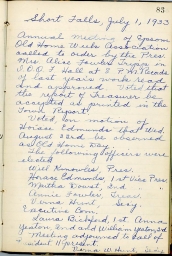 83
Short Falls, July 1, 1933
Annual Meeting of Epsom
Old Home Week Association
called to order by the Pres.
Mrs. Alice Fowler Tripp, in
I.O.O.F. Hall at 8 P.M. Records
of last year's work read
and approved. Voted that
the report of Treasurer be
accepted as printed in the
Town Report.
Voted on motion of
Horace Edmunds that Wed.
August 23rd be observed
as Old Home Day.
The following officers were
elected
Well Knowles, Pres.
Horace Edmonds, 1st Vice Pres.
Martha Doust, 2nd
Annie Fowler, Treas.
Verna Hunt, Sec.
Executive Com.
Laura Bickford, 1st, Anna
Yeaton, 2nd and William Yeaton, 3rd
Meeting adjourned to call of
President. 11 present.
Verna W. Hunt, Sec.